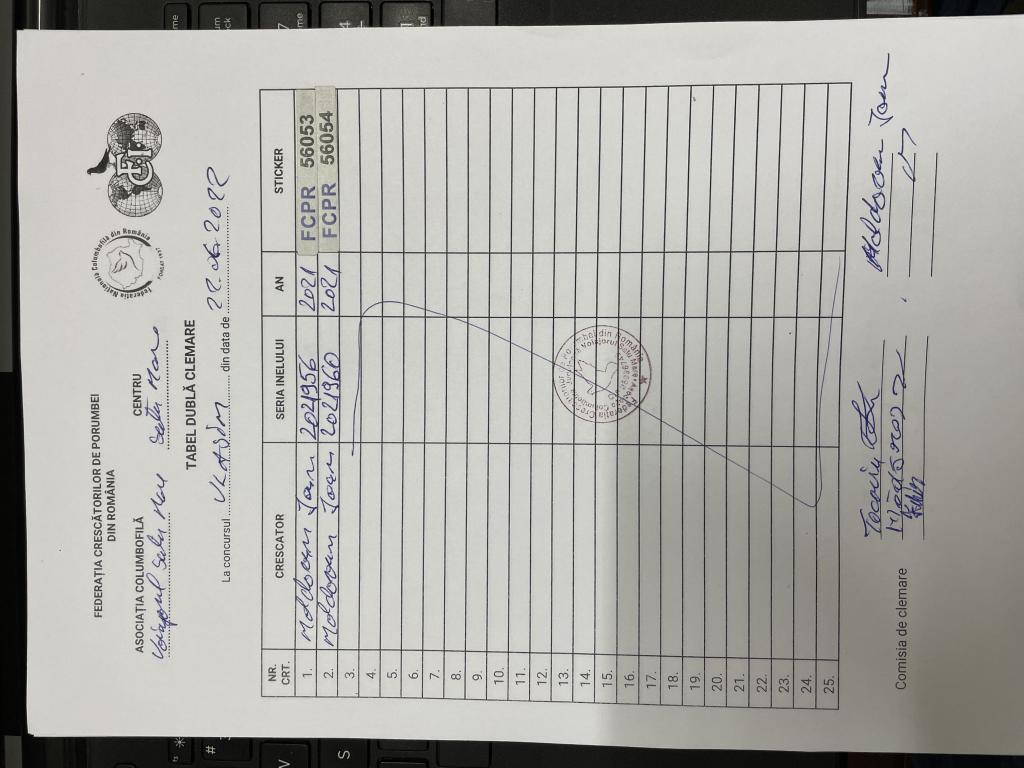 FEDERAȚIA CRESCĂTORILOR DE PORUMBEI
DIN ROMÂNIA
Federația Națională Columbofilă din România
FONDAT 1997
ASOCIAȚIA COLUMBOFILĂ CENTRU
Voiajorul Satu Mare Satu Mare
TABEL DUBLĂ CLEMARE
La concursul VLASIM din data de 22.06.2022
NR. CRT. CRESCATOR SERIA INELULUI AN STICKER
1. Moldovan Ioan 2021956 2021 FCPR 56053
2. Moldovan Ioan 2021960 2021 FCPR 56054
3.
4.
5.
6.
7.
8.
9.
10.
11.
12.
13.
14.
15.
16.
17.
18.
19.
20.
21.
22.
23.
24.
25.
Comisia de clemare
Moldovan Ioan